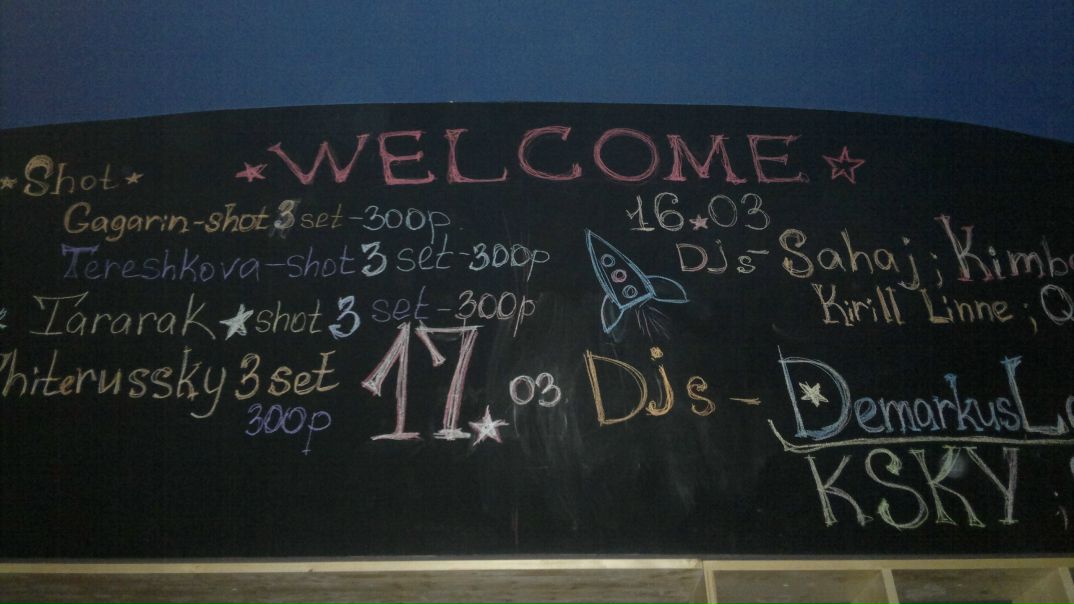 WELCOME
Shot
Gagarin-shot 3 set-300р
Tereshkova-shot 3 set-300р
Tararak shot 3 set-300р
Whiterussky 3 set
300р
16.03
DJs- Sahaj; Kimb
Kirill Linne;
17.03 DJs - Demarkus
KSKY;